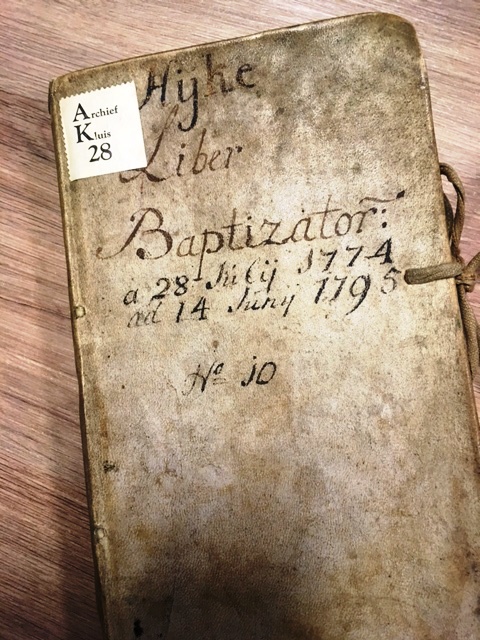 Archief
Kluis
28
Hijke
Liber
Baptizator:
a 28 Julij 1774
ad 14 Junij 1795
No 10